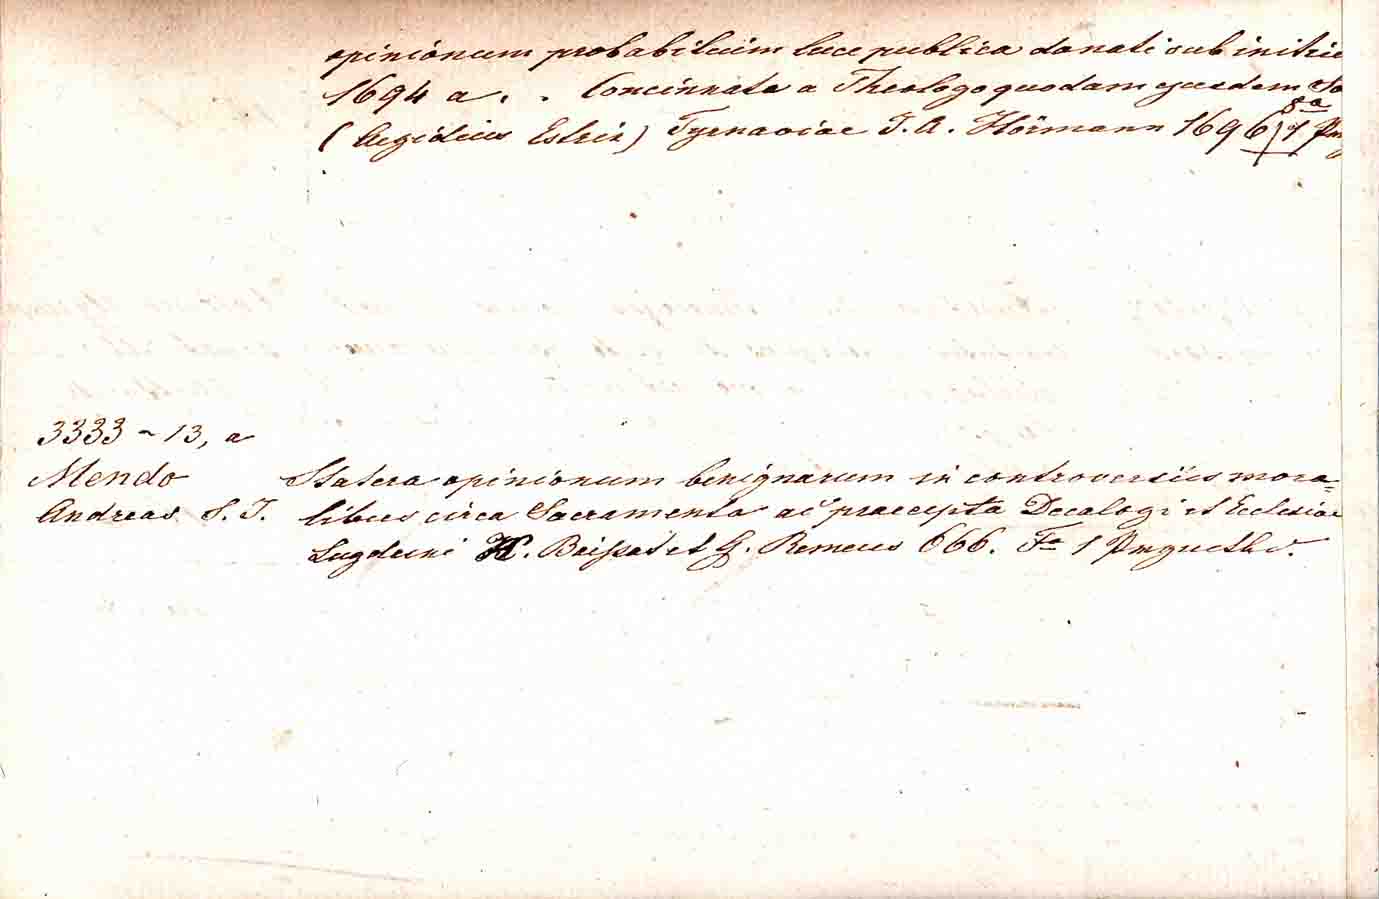 opinionum probabilium luce publica donati sub initiu
1694 a . . Concinnata a Theologo quodam ejusdem So
(Aegidius Estrix) Tyrnaviae J. A. Hörmann 1696 8a 1
3333 ~ 13, a
Mendo Statera opinionum benignarum in controversiis mora=
Andreas S. J. libus circa Sacramenta ac praecepta Decalogi et Ecclesiae
Lugduni H. Boissat et G. Remeus 666. Fo 1